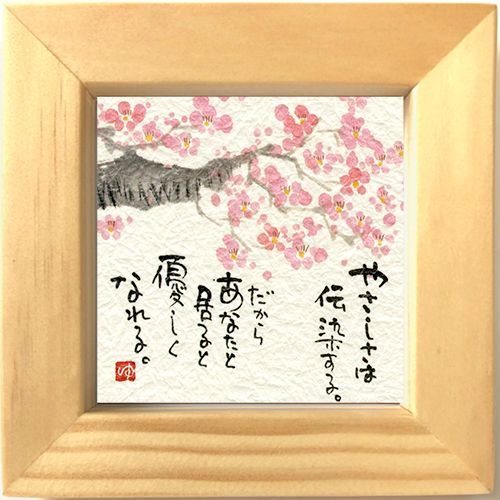 やさしさは
伝染する。
だから
あなたと
居ると
優しく
なれる。
ゆ